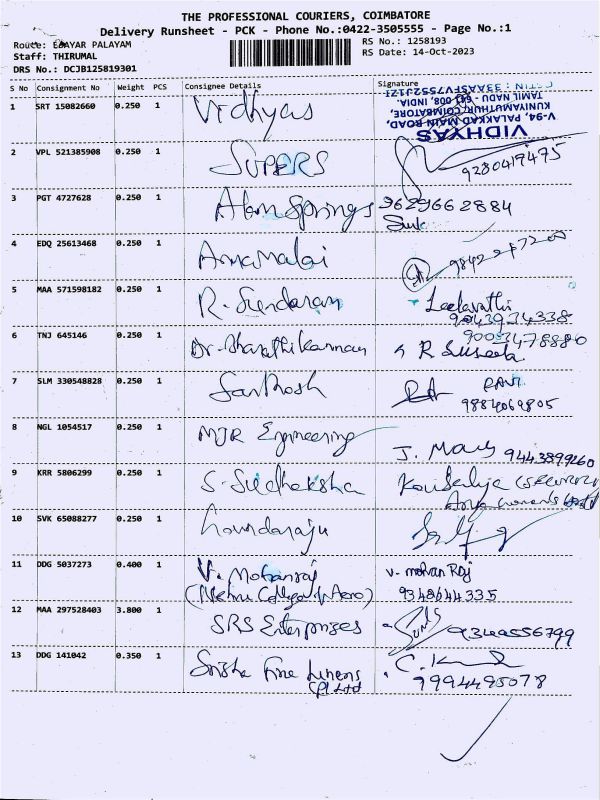 THE PROFESSIONAL COURIERS, COIMBATORE
Delivery Runsheet - PCK - Phone No.:0422-3505555 - Page No.:1
Route: EDAYAR PALAYAM
RS No.: 1258193
Staff: THIRUMAL
RS Date: 14-Oct-2023
DRS No.: DCJB125819301
S No Consignment No Weight PCS Consignee Details Signature
1 SRT 15082660 0.250 1 Vidhyas
VIDHYAS
V-94, PALAKKAD MAIN ROAD,
KUNIYAMUTHUR, COIMBATORE,
TAMIL NADU - 641 008, INDIA.
2 VPL 521385908 0.250 1 SUPERS 9280419475
3 PGT 4727628 0.250 1 Alan Springs 9629662884
4 EDQ 25613468 0.250 1 Annamalai
5 MAA 571598182 0.250 1 R. Sundaram Leelavathi
9043934338
6 TNJ 645146 0.250 1 Dr. Bharathikannan R Suseela
9003478880
7 SLM 330548828 0.250 1 Santhosh RAVI
9884069805
8 NGL 1054517 0.250 1 MJR Engineering J. Mary 9443899260
9 KRR 5806299 0.250 1 S. Sudheksha Kousalya
10 SVK 65088277 0.250 1 Goundaraju
11 DDG 5037273 0.400 1 V. Mohanraj v. mohan Raj
(Nehru College of Aero) 9348644335
12 MAA 297528403 3.800 1 SRS Enterprises 9344556799
13 DDG 141042 0.350 1 Srisha Fine Linens C. K
(P) Ltd 9994495078